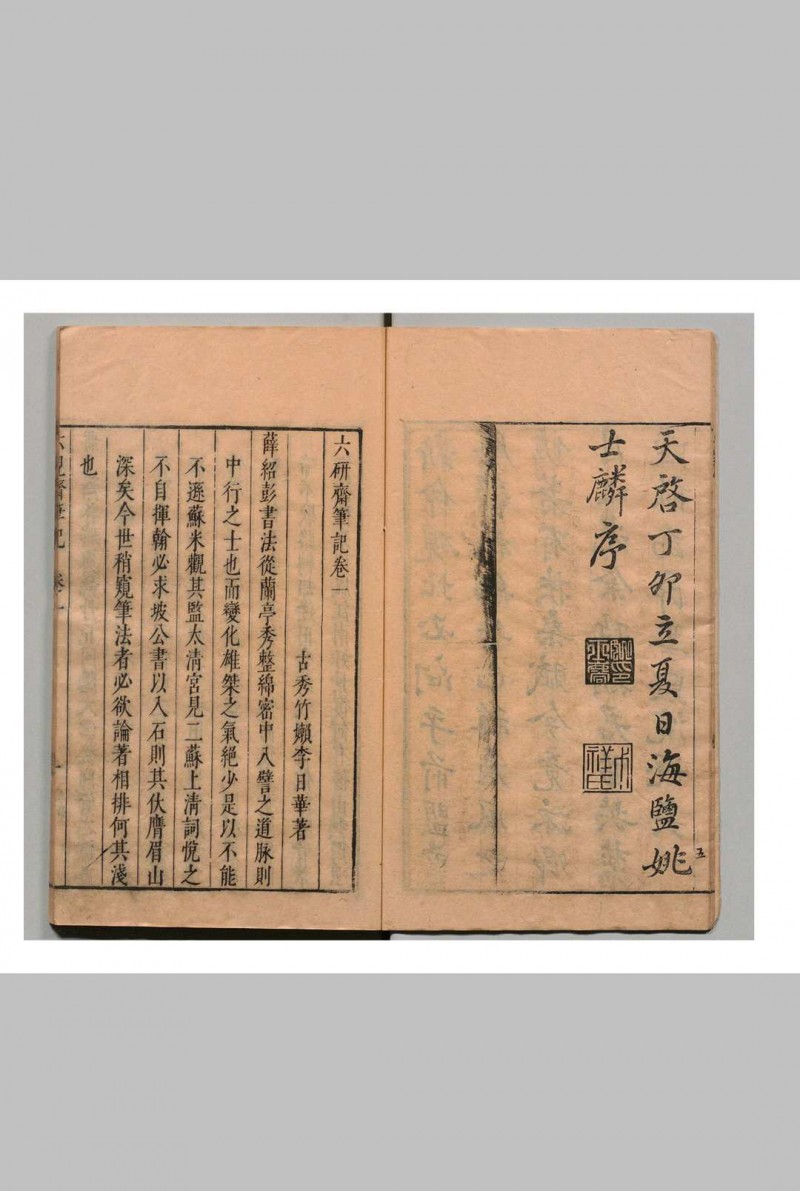 天啓丁卯立夏日海鹽姚
士麟序
五
六研齋筆記卷一
古秀竹嬾李日華著
薛紹彭書法從蘭亭秀整綿密中入譬之道脉則
中行之士也而變化雄桀之氣絶少是以不能
不遜蘇米觀其監太清宮見二蘇上清詞悅之
不自揮翰必求坡公書以入石則其伏膺眉山
深矣今世稍窺筆法者必欲論著相排何其淺
也
六研齋筆記 卷一